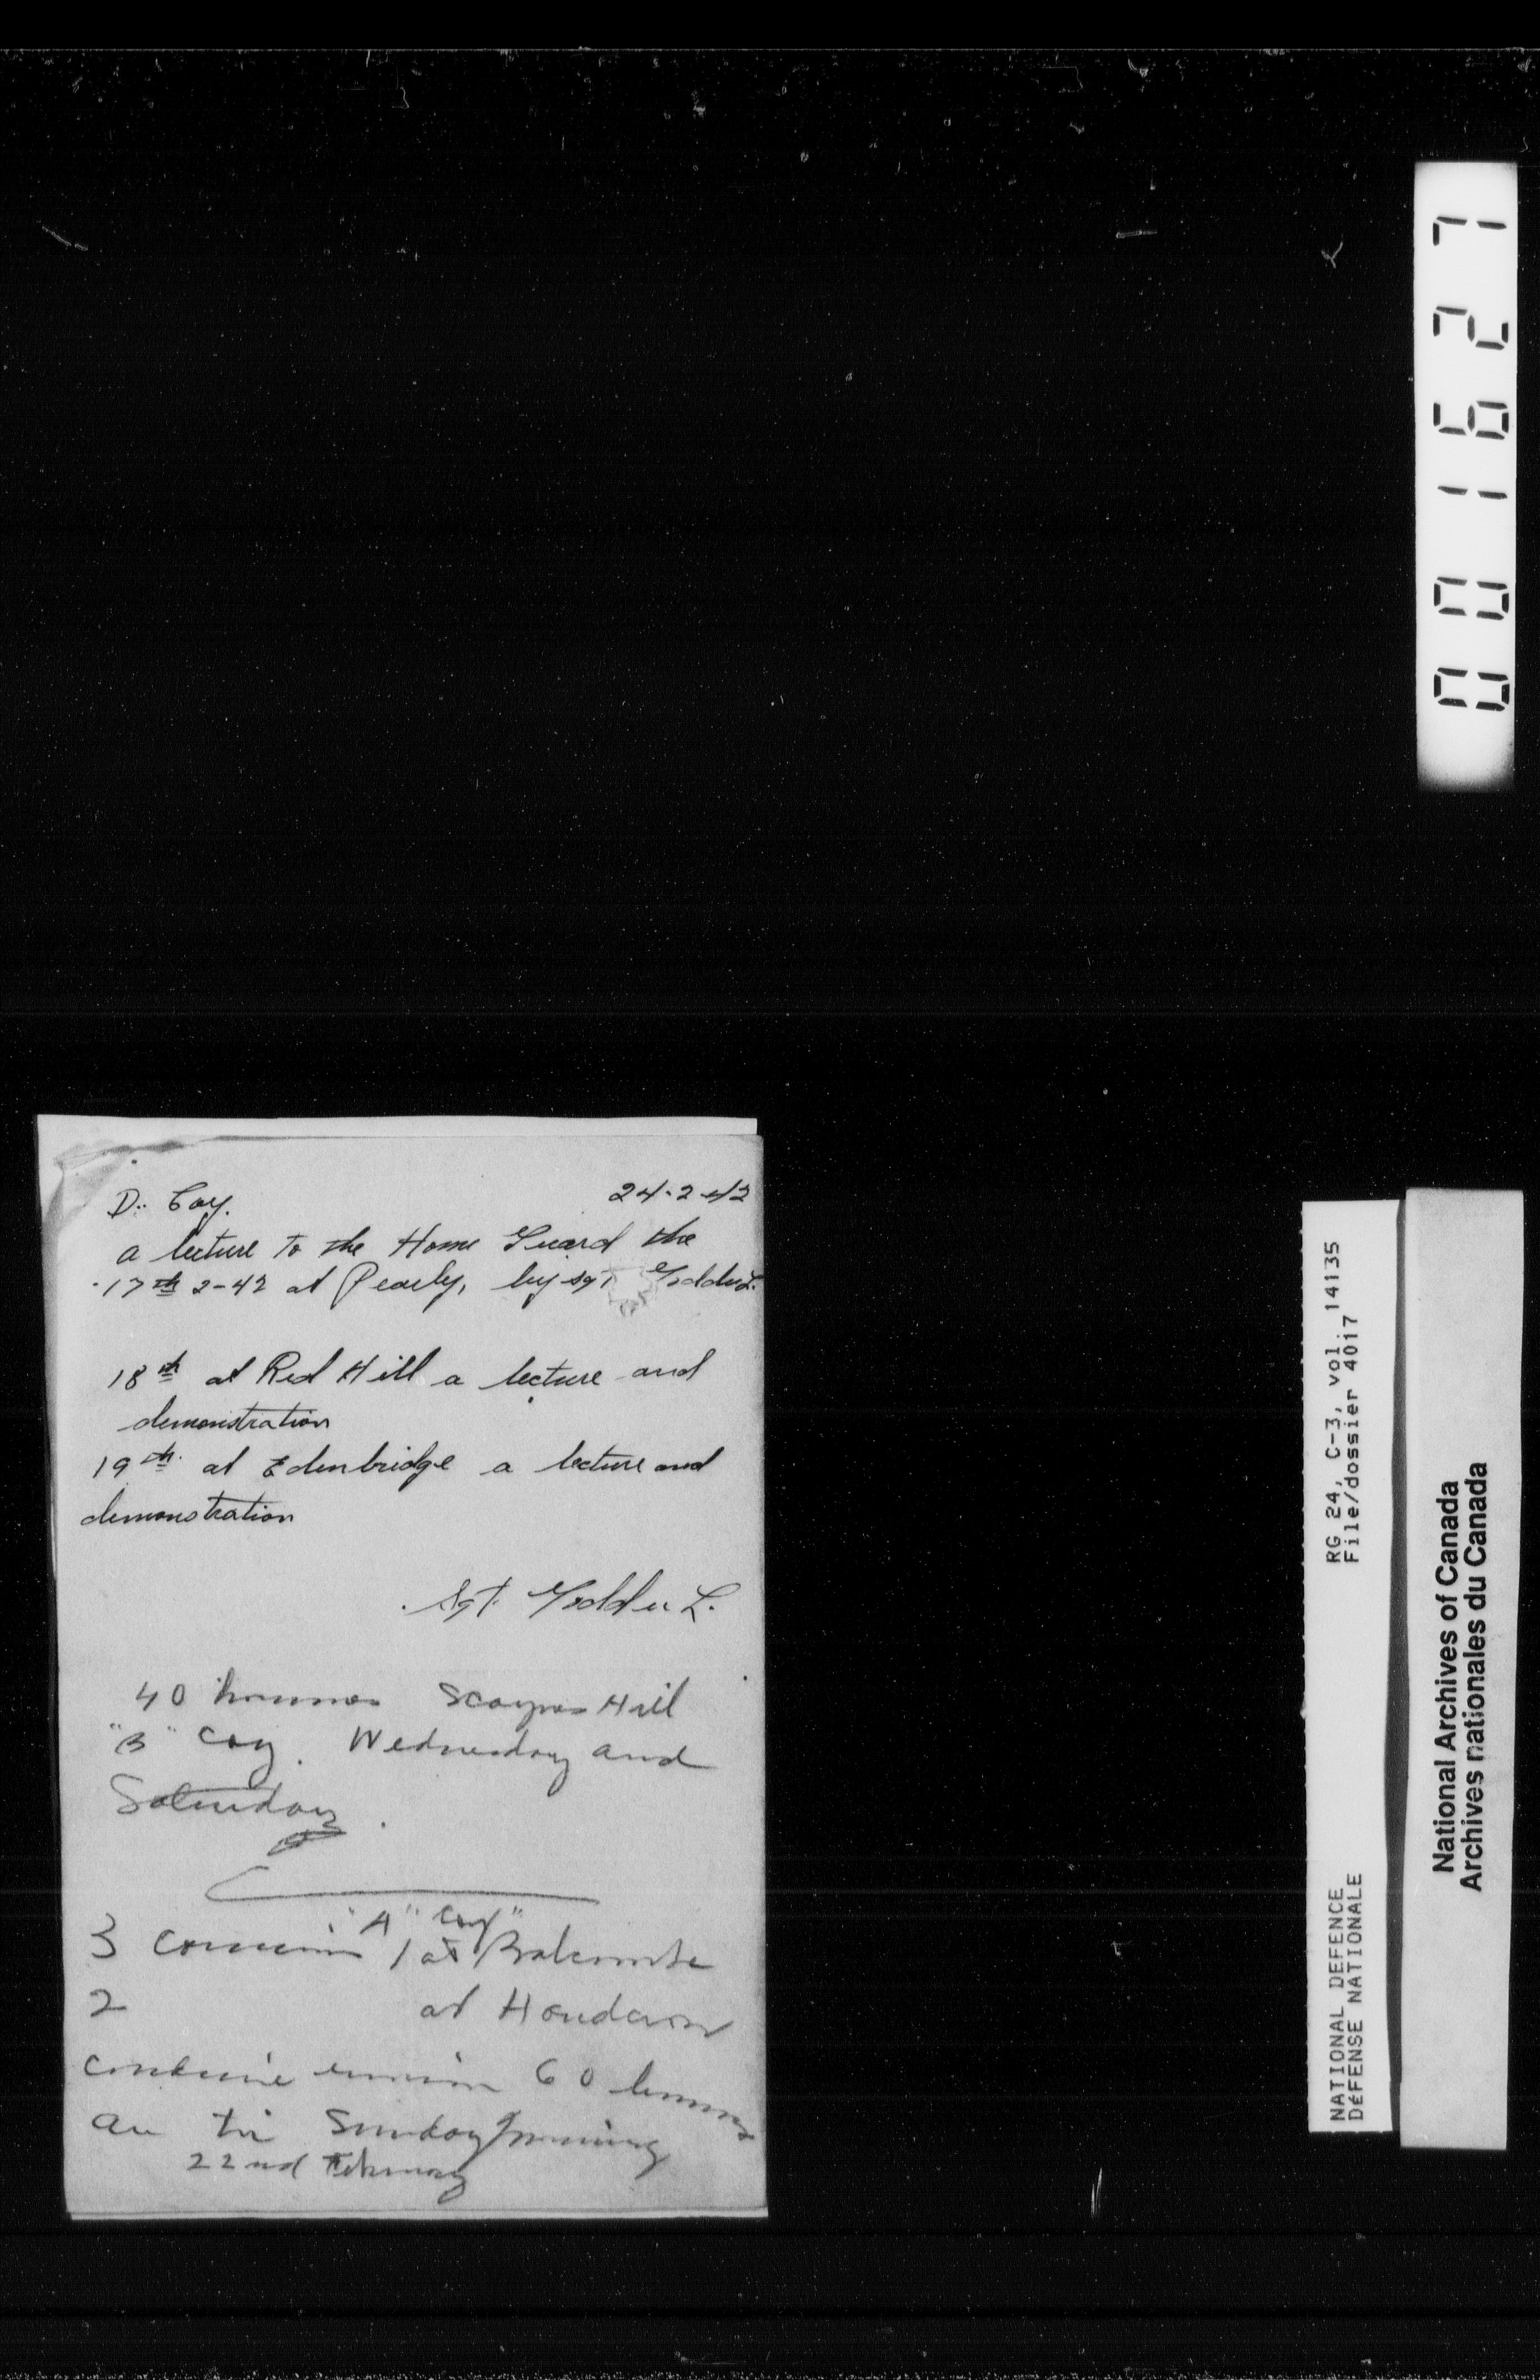 D. Coy. 24-2-42
a lecture to the Home Guard the
17th 2-42 at Pearly, by sgt Goddu L.
18th at Red Hill a lecture and
demonstration
19th at Edenbridge a lecture and
demonstration
Sgt. Goddu L.
40 hommes Scaynes Hill
"B" Coy. Wednesday and
Saturday.
"A" Coy"
3 1 at Balcombe
2 at
60 hommes
au tir Sunday morning
22nd February
001627
RG 24, C-3, vol. 14135
File/dossier 4017
NATIONAL DEFENCE
DÉFENSE NATIONALE
National Archives of Canada
Archives nationales du Canada